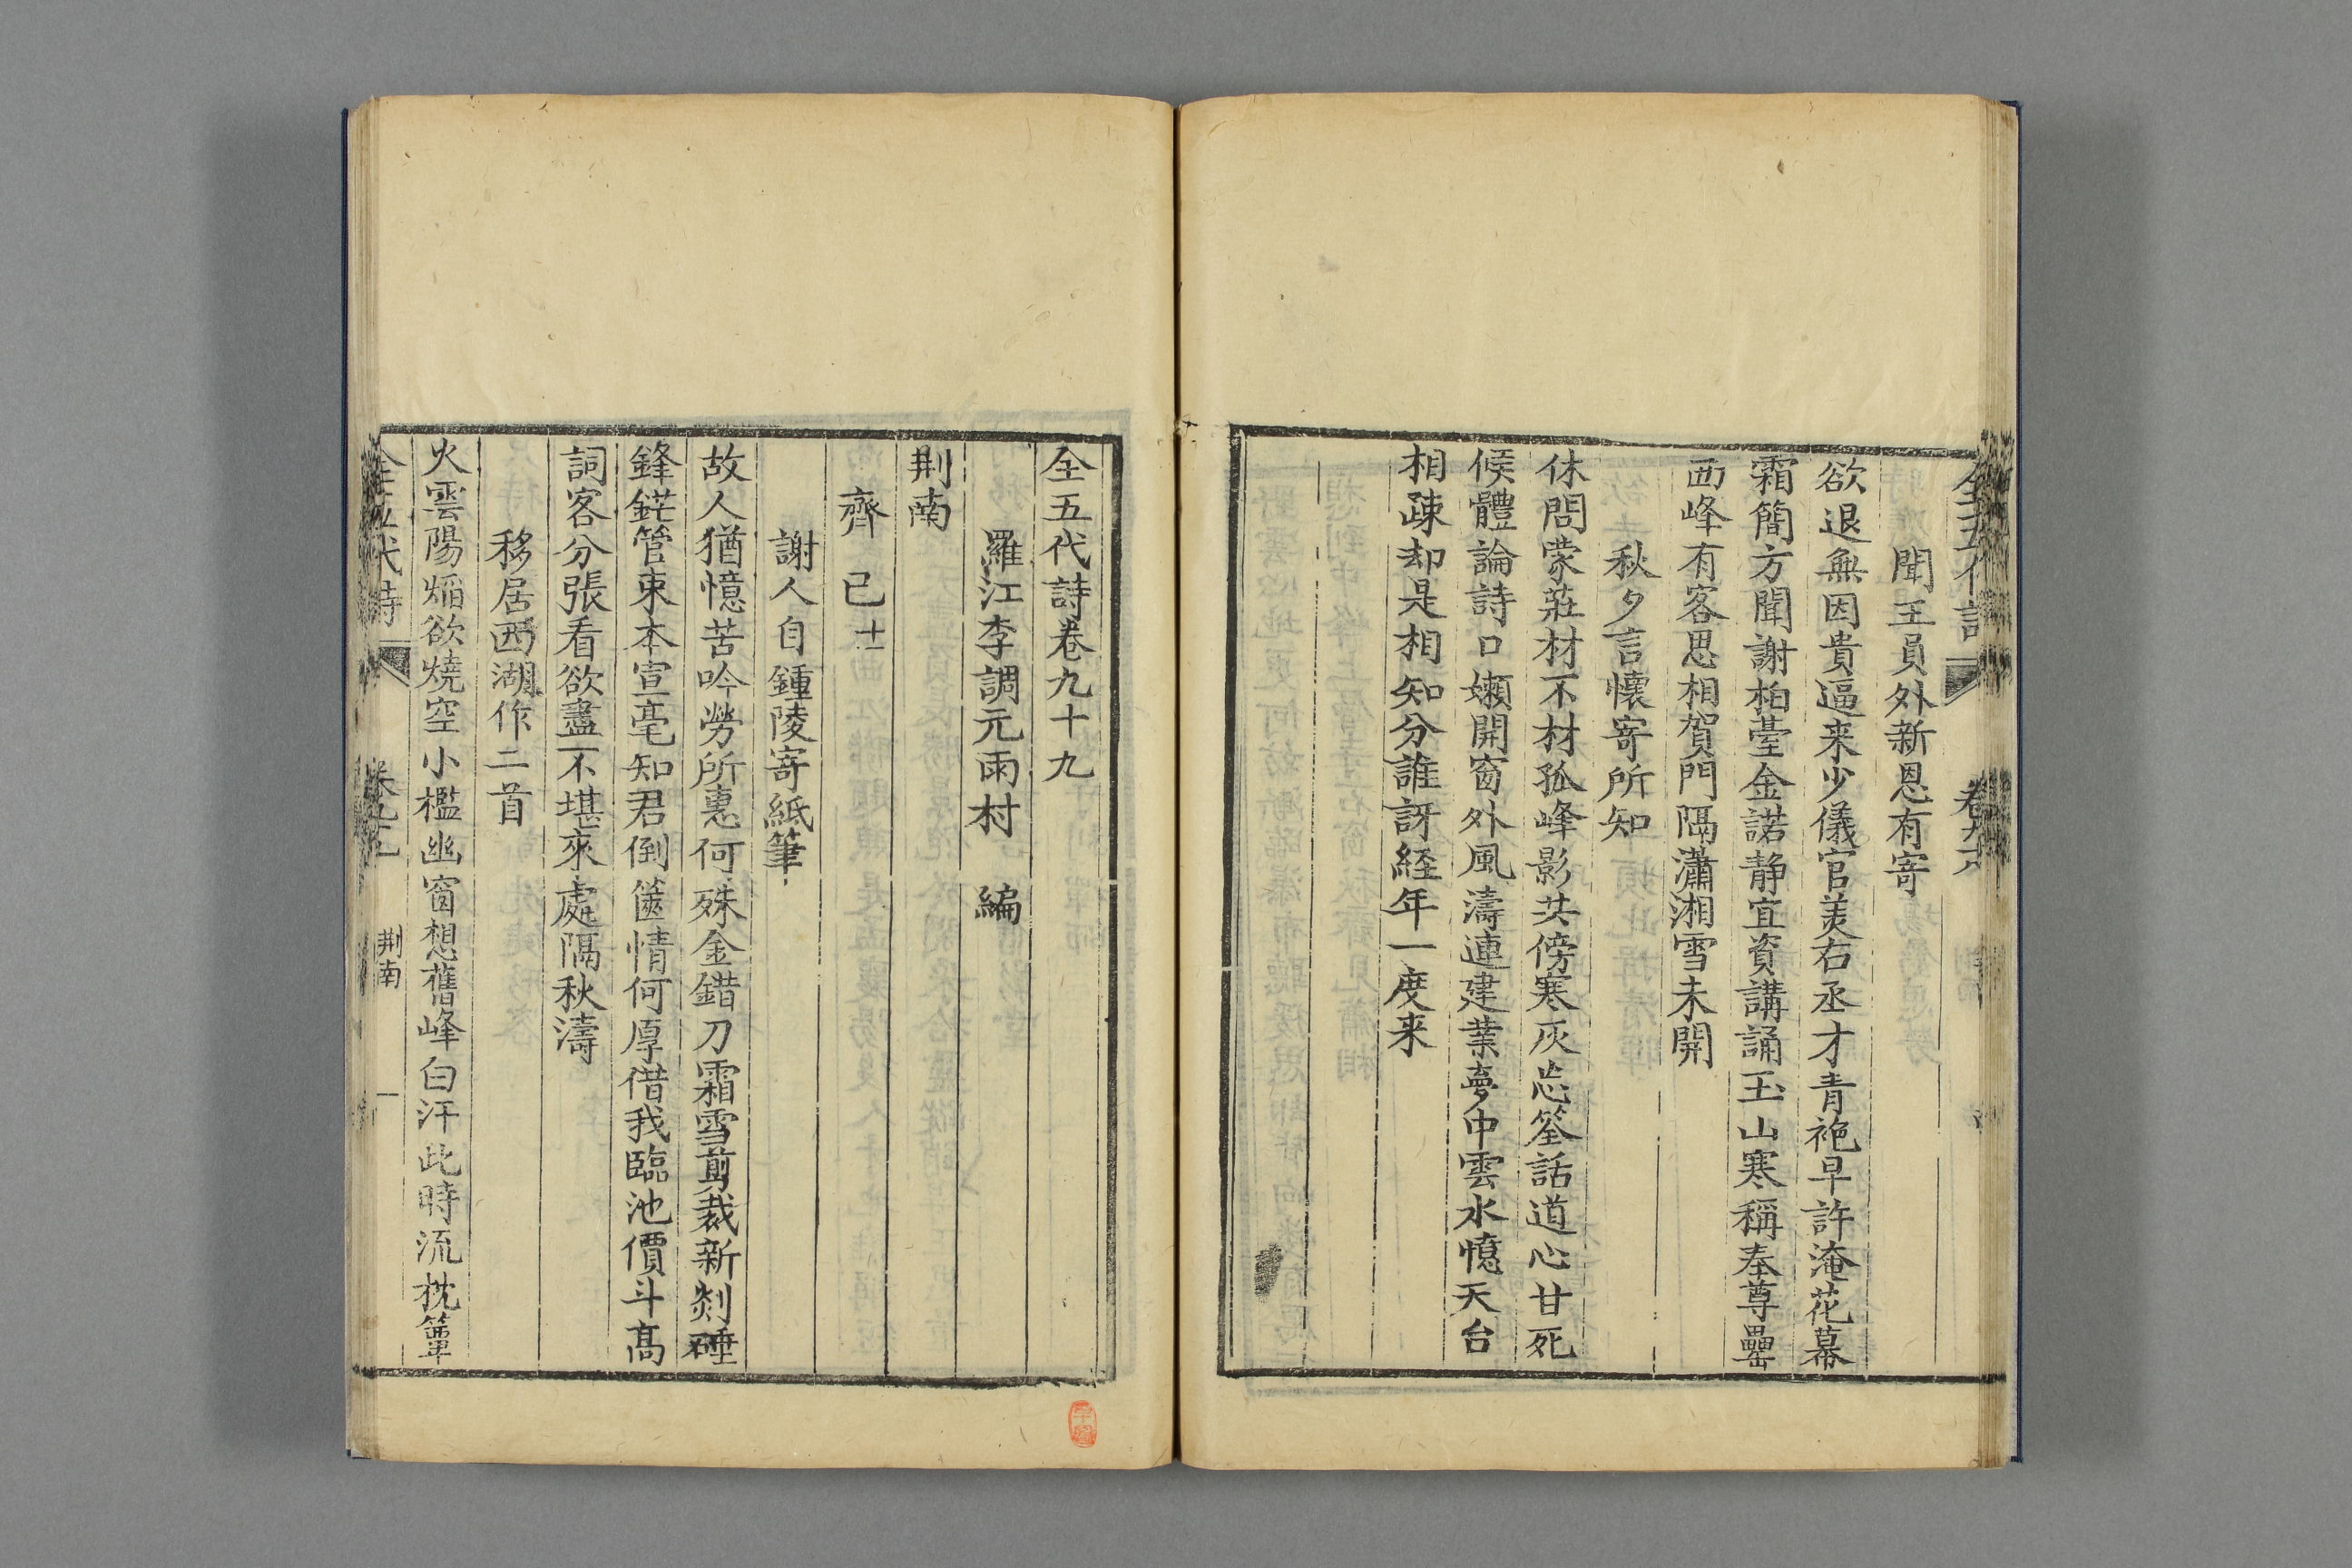 聞王員外新恩有寄
欲退無因貴逼来少儀官美右丞才青袍早許淹花幕
霜簡方聞謝柏臺金諾静宜資講誦玉山寒稱奉尊罍
西峰有客思相賀門隔瀟湘雪未開
秋夕言懷寄所知
休問蒙莊材不材孤峰影共傍寒灰忘筌話道心甘死
候體論詩口嬾開窗外風濤連建業夢中雲水憶天台
相疎却是相知分誰訝経年一度来
全五代詩卷九十九
羅江李調元雨村 編
荆南
齊 已 十一
謝人自鍾陵寄紙筆
故人猶憶苦吟勞所惠何殊金錯刀霜雪剪裁新剡硾
鋒鋩管束本宣毫知君倒篋情何厚借我臨池價斗高
詞客分張看欲盡不堪來處隔秋濤
移居西湖作二首
火雲陽焰欲燒空小檻幽窗想舊峰白汗此時流枕簟
全五代詩 卷九十九 荆南 一